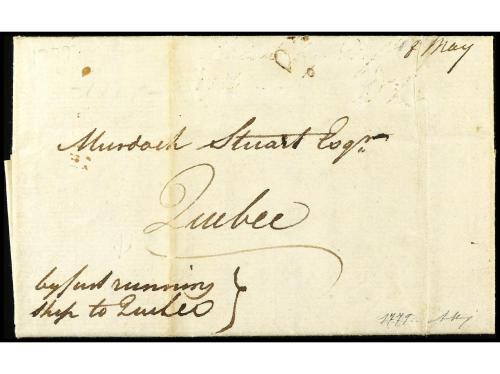 8 May
Murdoch Stuart Esqr.
Quebec
by first running
ship to Quebec
1779